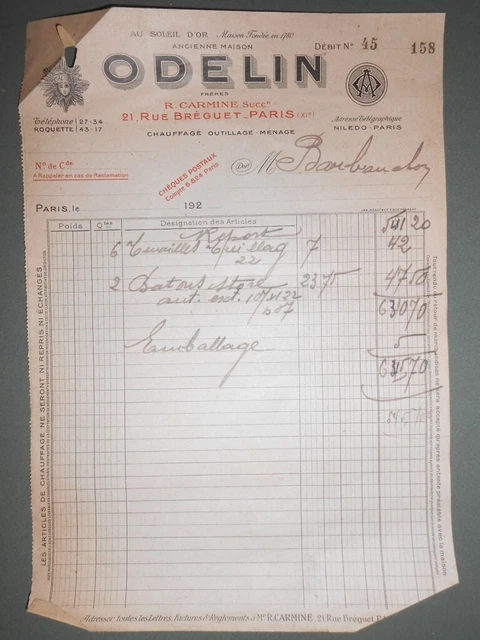 AU SOLEIL D'OR Maison Fondée en 1780
ANCIENNE MAISON
DÉBIT No 45 158
ODELIN
FRÈRES
R. CARMINE, Succr
21, RUE BRÉGUET_PARIS (XIe)
Téléphone 27-34
ROQUETTE 43-17
Adresse Télégraphique
NILEDO-PARIS
CHAUFFAGE OUTILLAGE-MÉNAGE
No de Cde
A Rappeler en cas de Réclamation
CHÈQUES POSTAUX
Compte 6.624-Paris
Doit M
PARIS, le 192
Poids Qtés Désignation des Articles
Report 541 20
6 7 42
22
2 Batons store 23.75 47 50
630 70
Emballage 5
635 70
LES ARTICLES DE CHAUFFAGE NE SERONT NI REPRIS NI ÉCHANGÉS
Adresser toutes les Lettres, Factures & Règlements à Mr R. CARMINE, 21, Rue Bréguet